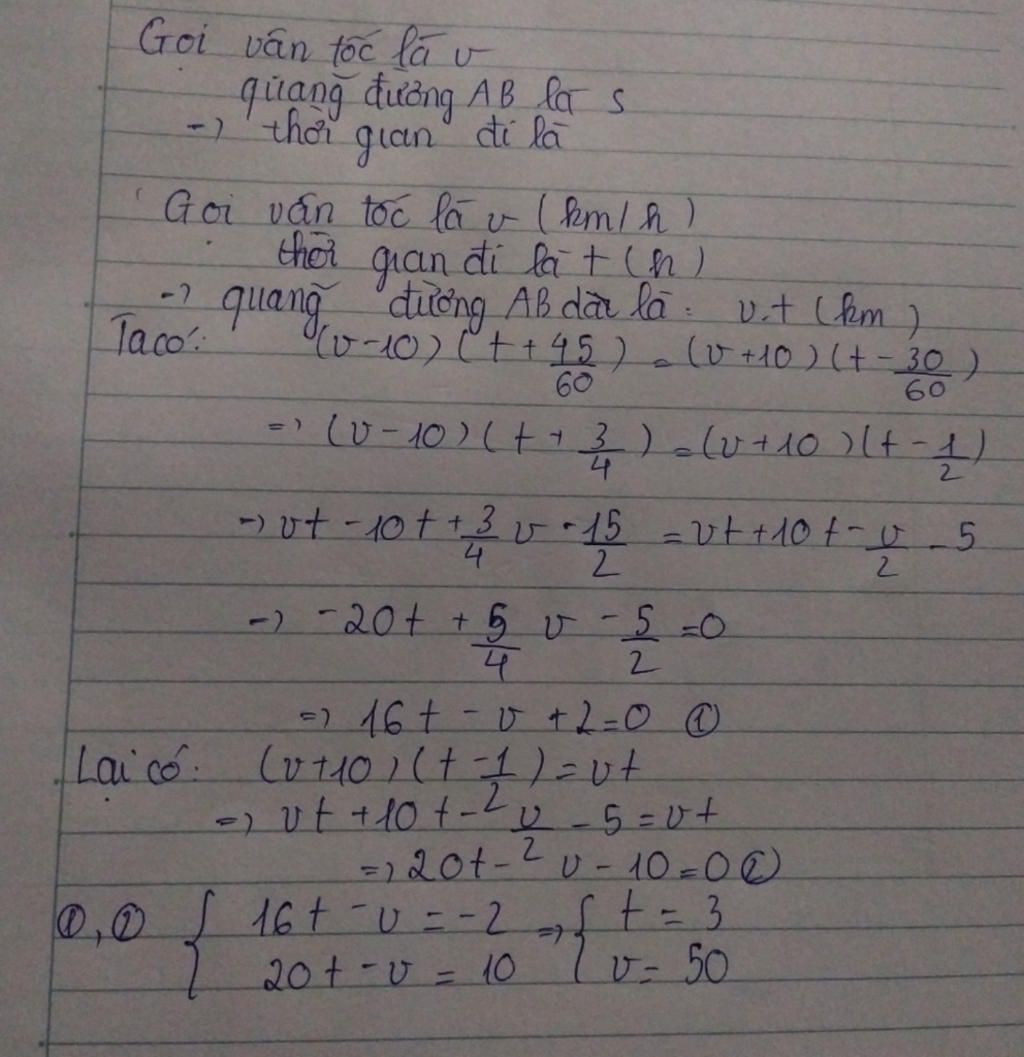 Gọi vân tốc là v
quãng đường AB là s
-> thời gian đi là
Gọi vân tốc là v (km/h)
thời gian đi là t (h)
-> quãng đường AB dài là: v.t (km)
Ta có: (v-10)(t+45/60) = (v+10)(t-30/60)
=> (v-10)(t+3/4) = (v+10)(t-1/2)
-> vt-10t+3/4 v-15/2 = vt+10t-v/2-5
-> -20t+5/4 v-5/2=0
=> 16t-v+2=0 ①
Lại có: (v+10)(t-1/2)=vt
=> vt+10t-v/2-5=vt
=> 20t-v-10=0 ②
①,② { 16t-v=-2 => { t=3
20t-v=10 v=50